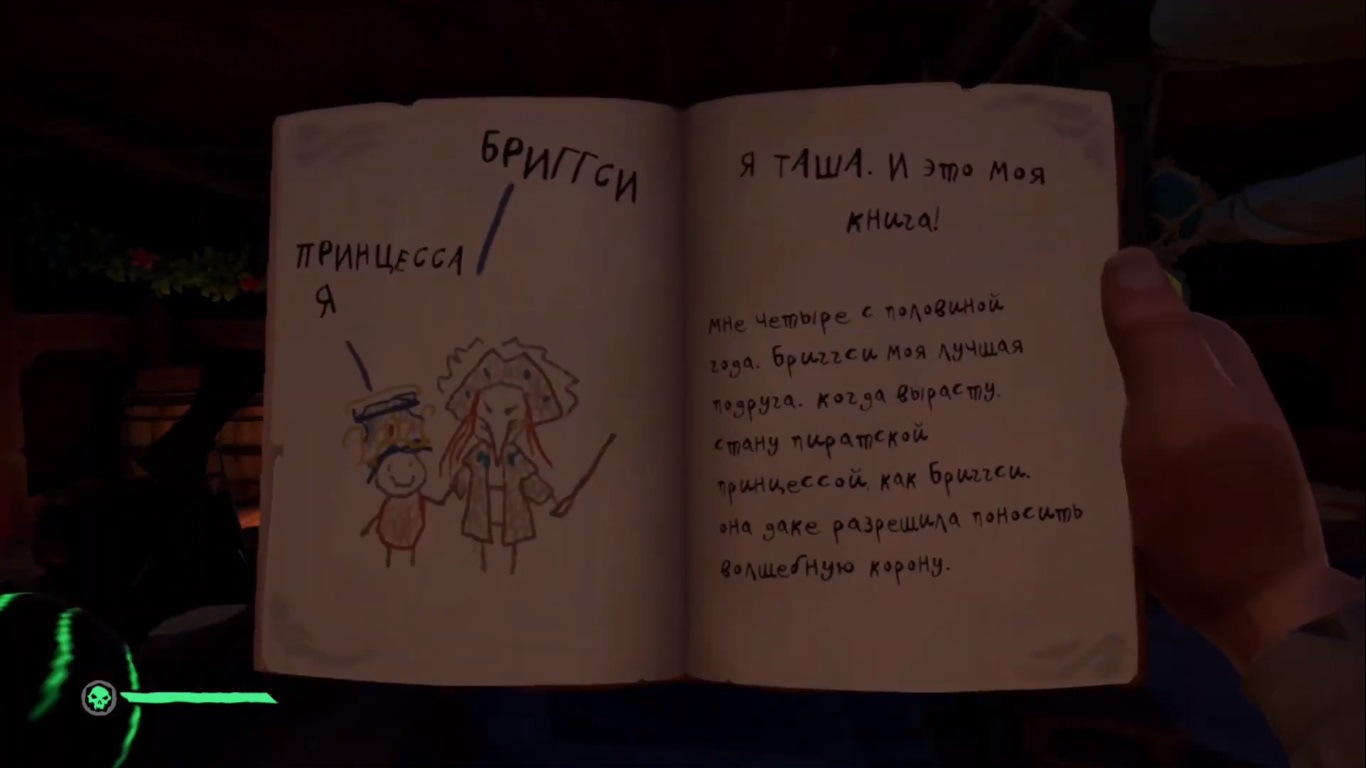 БРИГГСИ
ПРИНЦЕССА
Я
Я ТАША. И это моя
книга!
мне четыре с половиной
года. Бриггси моя лучшая
подруга. когда вырасту.
стану пиратской
принцессой, как Бриггси.
она даже разрешила поносить
волшебную корону.